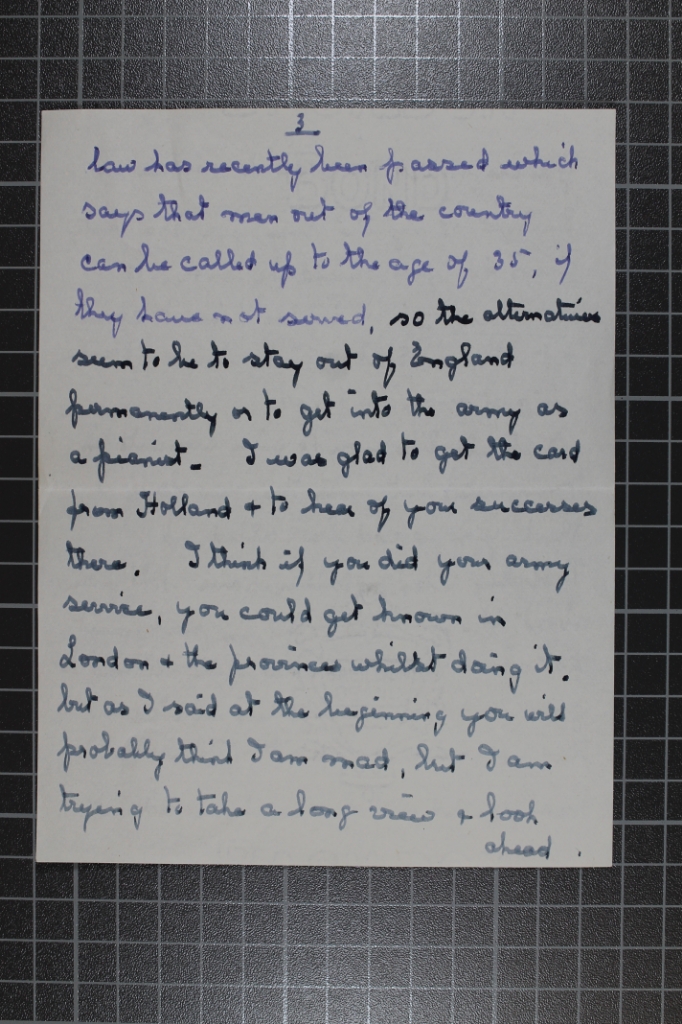 3
law has recently been passed which
says that men out of the country
can be called up to the age of 35, if
they have not served, so the alternatives
seem to be to stay out of England
permanently or to get into the army as
a pianist. I was glad to get the card
from Holland + to hear of your successes
there. I think if you did your army
service, you could get known in
London + the provinces whilst doing it.
but as I said at the beginning you will
probably think I am mad, but I am
trying to take a long view + look
ahead.